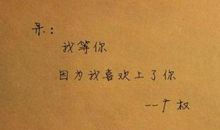 呆：
我等你
因为我喜欢上了你
--广权